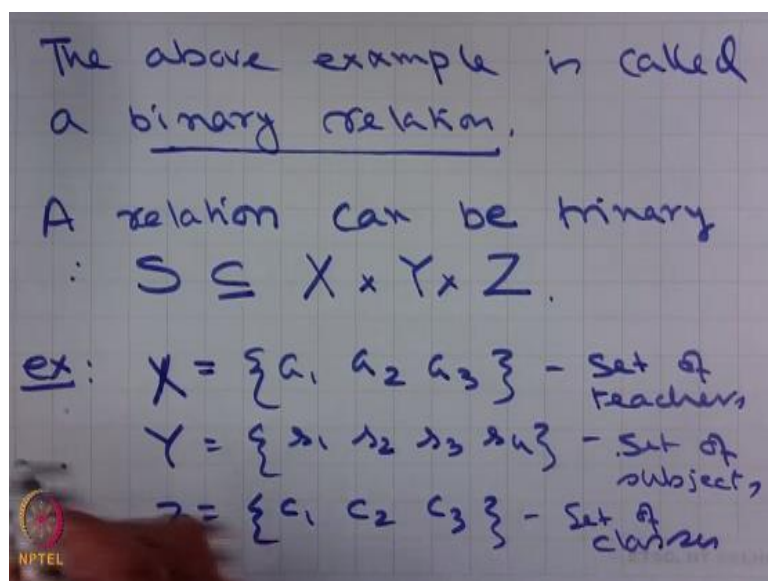 The above example is called
a binary relation.
A relation can be trinary
: S ⊆ X × Y × Z.
ex: X = {a₁ a₂ a₃} - Set of
teachers
Y = {s₁ s₂ s₃ s₄} - Set of
subjects
= {c₁ c₂ c₃} - Set of
classes
NPTEL